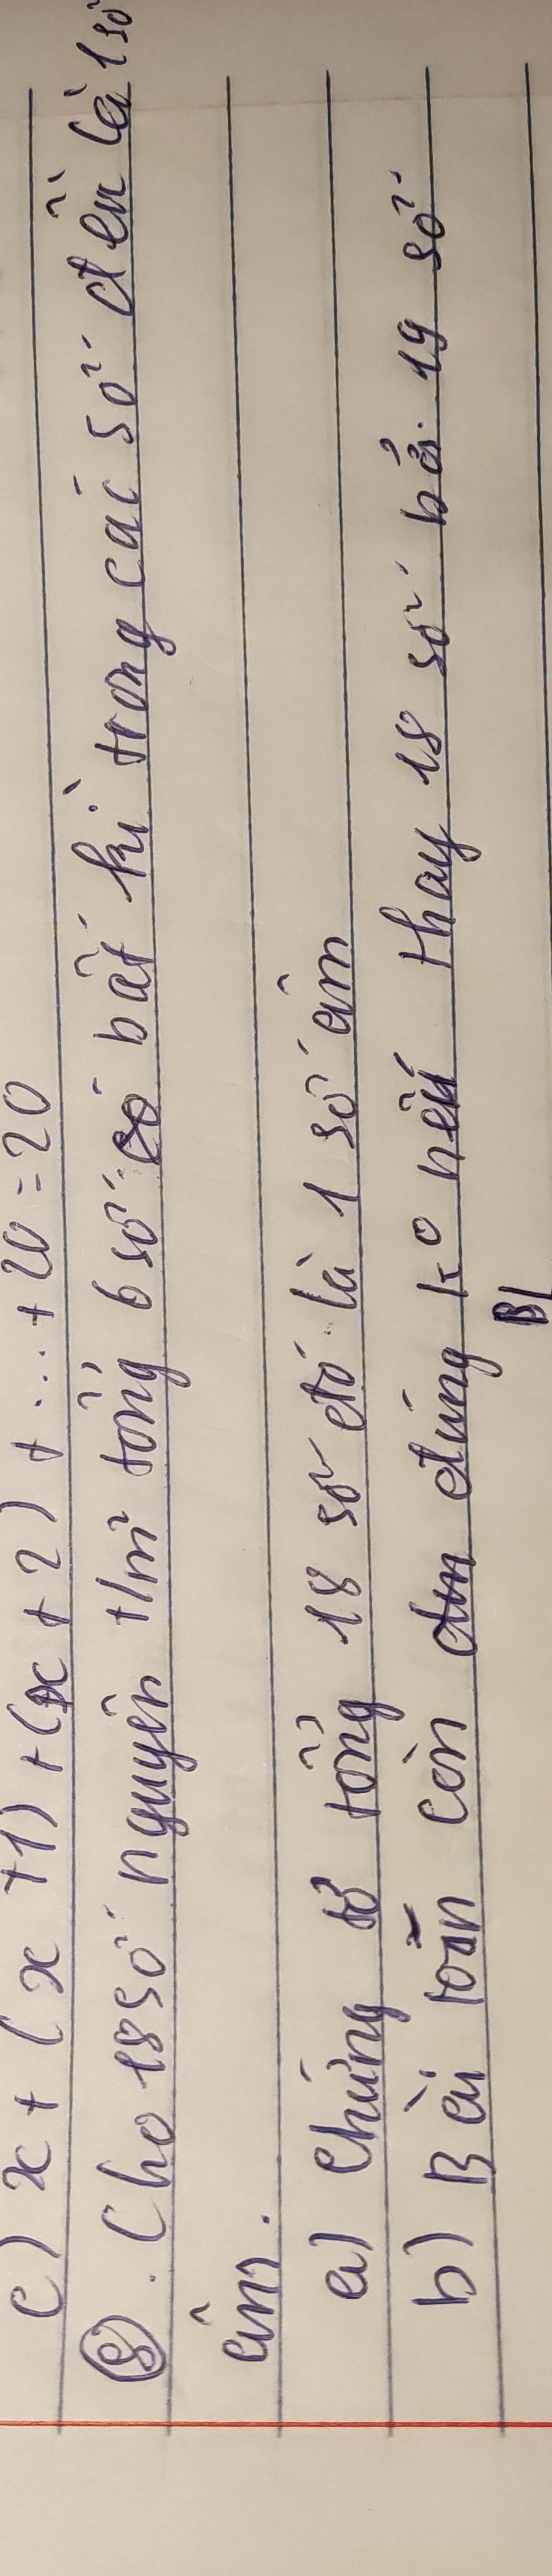 c) x + (x +1) + (x + 2) + ... + 20 = 20
8. Cho 18 số nguyên tm tổng 6 số bất kì trong các số đều là 1 số
âm.
a) Chứng tỏ tổng 18 số đó là 1 số âm
b) Bài toán còn đúng ko nếu thay 18 số bởi 19 số
BL